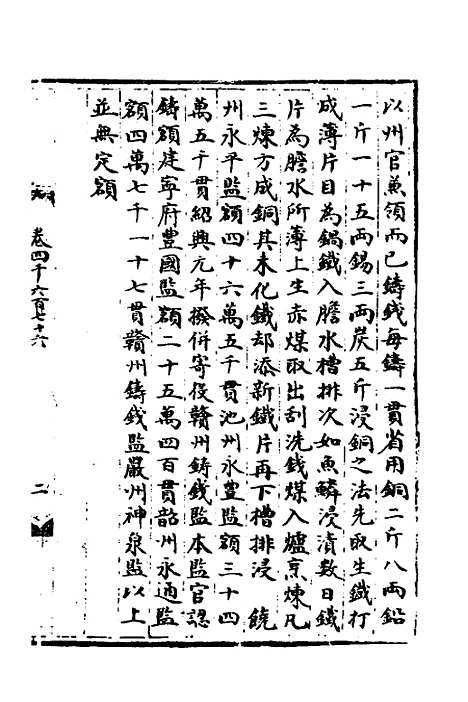 以州官兼領而已鑄錢每鑄一貫省用銅二斤八兩鉛
一斤一十五兩錫三兩炭五斤浸銅之法先取生鐵打
成薄片目為鍋鐵入膽水槽排次如魚鱗浸漬數日鐵
片為膽水所薄上生赤煤取出刮洗錢煤入爐烹煉凡
三煉方成銅其未化鐵却添新鐵片再下槽排浸　饒
州永平監額四十六萬五千貫池州永豐監額三十四
萬五千貫紹興元年撥併寄役贛州鑄錢監本監官認
鑄額建寧府豐國監額二十五萬四百貫韶州永通監
額四萬七千一十七貫贛州鑄錢監嚴州神泉監以上
並無定額
卷四千六百七十六
二